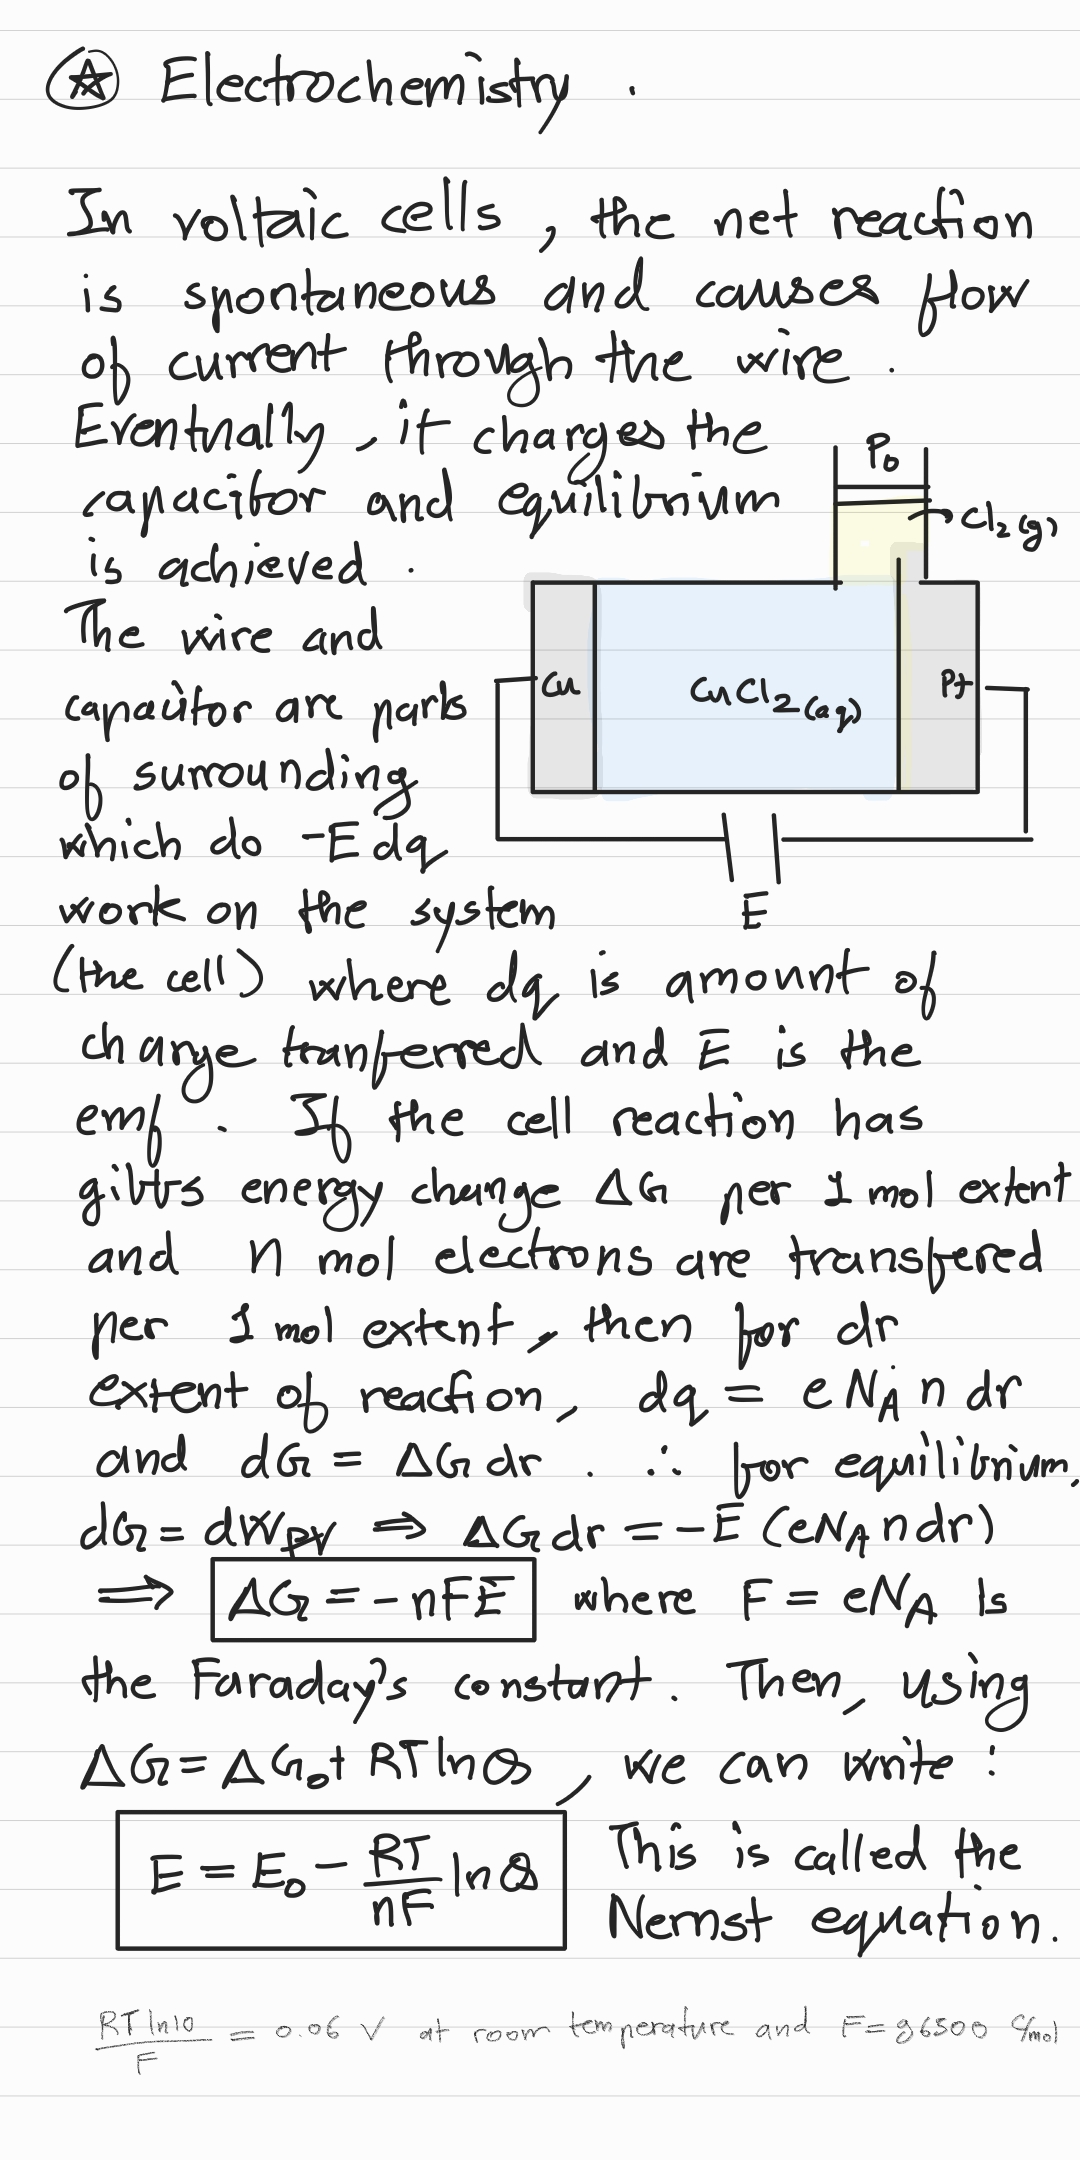 Electrochemistry .
In voltaic cells , the net reaction
is spontaneous and causes flow
of current through the wire .
Eventually , it charges the
capacitor and equilibrium
is achieved .
P₀
Cl₂(g)
The wire and
capacitor are parts
of surrounding
which do -E dq
work on the system
Cu
CuCl₂(aq)
Pt
E
(the cell) where dq is amount of
charge tranferred and E is the
emf . If the cell reaction has
gibbs energy change ΔG per 1 mol extent
and n mol electrons are transfered
per 1 mol extent, then for dr
extent of reaction, dq = e N_A n dr
and dG = ΔG dr . ∴ for equilibrium,
dG = dW_PV ⇒ ΔG dr = -E (eN_A n dr)
⇒ ΔG = - nFE where F = eN_A Is
the Faraday's constant. Then, using
ΔG = ΔG₀ + RT ln Q , we can write :
E = E₀ - RT/nF ln Q
This is called the
Nernst equation.
RT ln10/F = 0.06 V at room temperature and F = 96500 C/mol